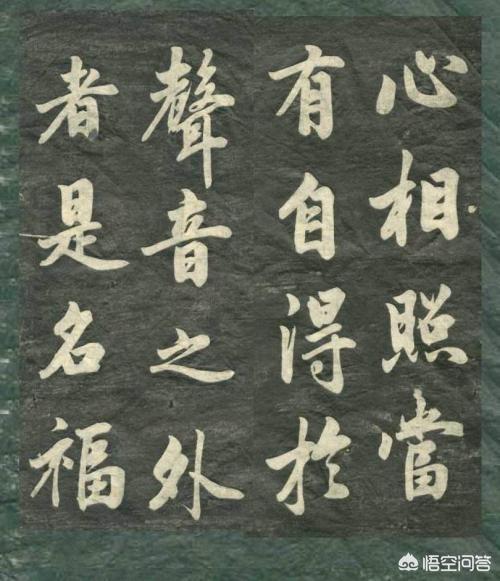 心相照當
有自得於
聲音之外
者是名福
悟空问答